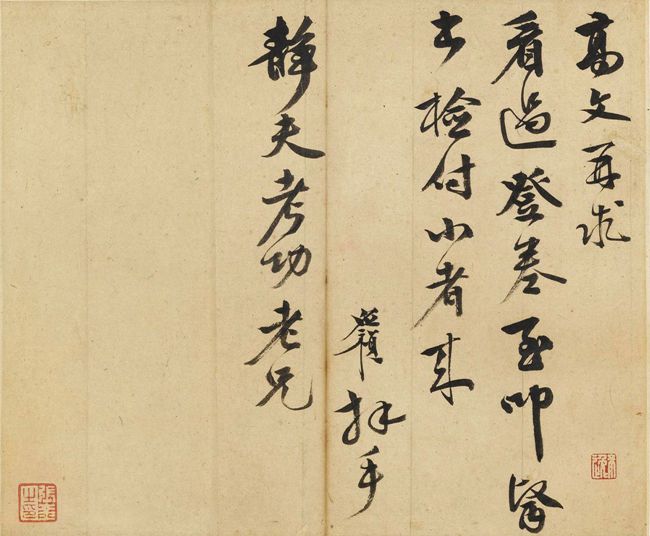 高文再求
看過登卷至叩
檢付小者来
拜手
靜夫考功老兄